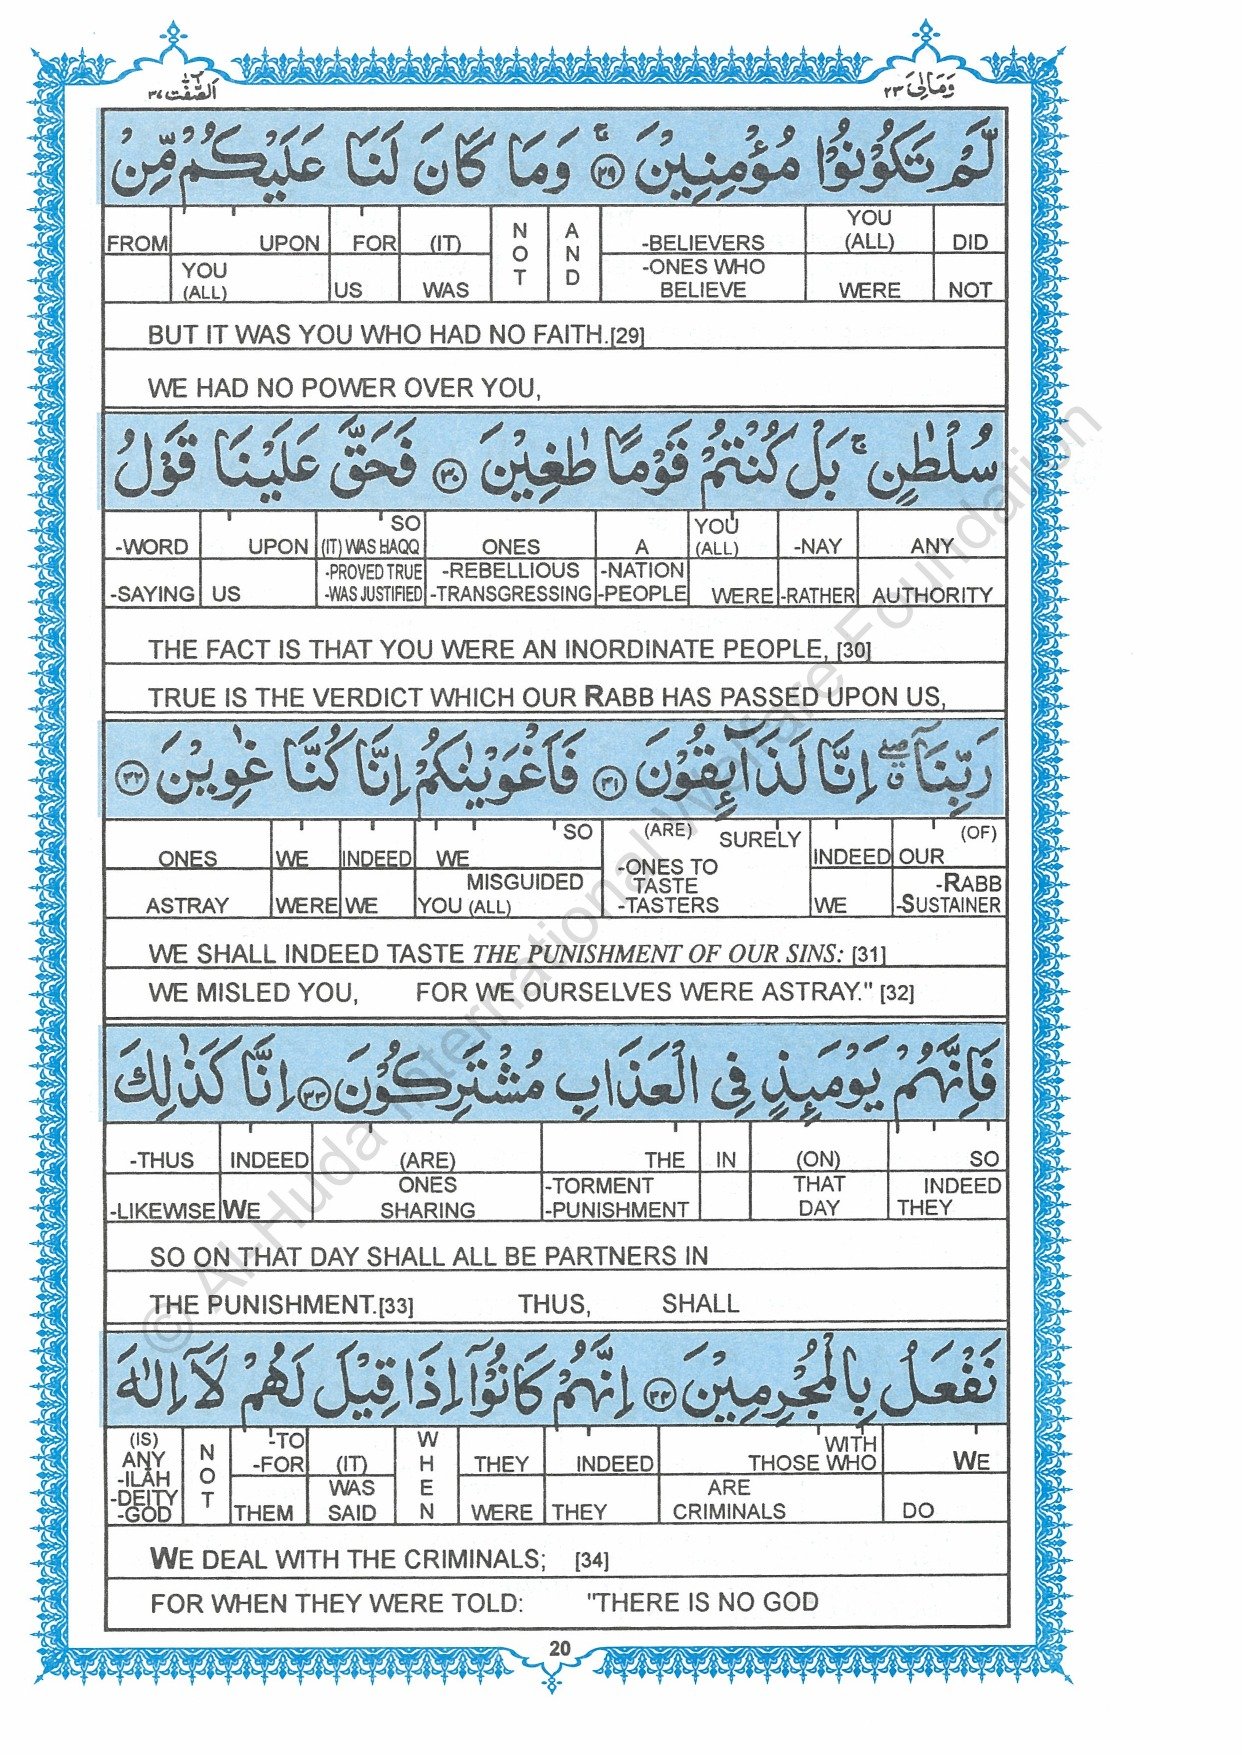 وَمَالِیَ ٢٣
اَلصّٰٓفّٰت ٣٧
لَّمْ تَكُوْنُوْا مُؤْمِنِيْنَ ۚ ٢٩ وَمَا كَانَ لَنَا عَلَيْكُمْ مِّنْ
FROM UPON FOR (IT) NOT AND -BELIEVERS YOU (ALL) DID
YOU (ALL) US WAS -ONES WHO BELIEVE WERE NOT
BUT IT WAS YOU WHO HAD NO FAITH.[29]
WE HAD NO POWER OVER YOU,
سُلْطٰنٍ ۚ بَلْ كُنْتُمْ قَوْمًا طٰغِيْنَ ٣٠ فَحَقَّ عَلَيْنَا قَوْلُ
-WORD UPON SO (IT) WAS HAQQ ONES A YOU (ALL) -NAY ANY
-SAYING US -PROVED TRUE -WAS JUSTIFIED -REBELLIOUS -TRANSGRESSING -NATION -PEOPLE WERE -RATHER AUTHORITY
THE FACT IS THAT YOU WERE AN INORDINATE PEOPLE, [30]
TRUE IS THE VERDICT WHICH OUR RABB HAS PASSED UPON US,
رَبِّنَآ ۖ ق اِنَّا لَذَآئِقُوْنَ ٣١ فَاَغْوَيْنٰكُمْ اِنَّا كُنَّا غٰوِيْنَ ٣٢
ONES WE INDEED WE SO (ARE) SURELY INDEED OUR (OF)
ASTRAY WERE WE MISGUIDED YOU (ALL) -ONES TO TASTE -TASTERS WE -RABB -SUSTAINER
WE SHALL INDEED TASTE THE PUNISHMENT OF OUR SINS: [31]
WE MISLED YOU, FOR WE OURSELVES WERE ASTRAY." [32]
فَاِنَّهُمْ يَوْمَئِذٍ فِى الْعَذَابِ مُشْتَرِكُوْنَ ٣٣ اِنَّا كَذٰلِكَ
-THUS INDEED (ARE) THE IN (ON) SO
-LIKEWISE WE ONES SHARING -TORMENT -PUNISHMENT THAT DAY INDEED THEY
SO ON THAT DAY SHALL ALL BE PARTNERS IN
THE PUNISHMENT.[33] THUS, SHALL
نَفْعَلُ بِالْمُجْرِمِيْنَ ٣٤ اِنَّهُمْ كَانُوْٓا اِذَا قِيْلَ لَهُمْ لَآ اِلٰهَ
(IS) ANY -ILĀH -DEITY -GOD NOT -TO -FOR (IT) WHEN THEY INDEED WITH THOSE WHO WE
THEM WAS SAID WERE THEY ARE CRIMINALS DO
WE DEAL WITH THE CRIMINALS; [34]
FOR WHEN THEY WERE TOLD: "THERE IS NO GOD
20
© Al-Huda International Welfare Foundation